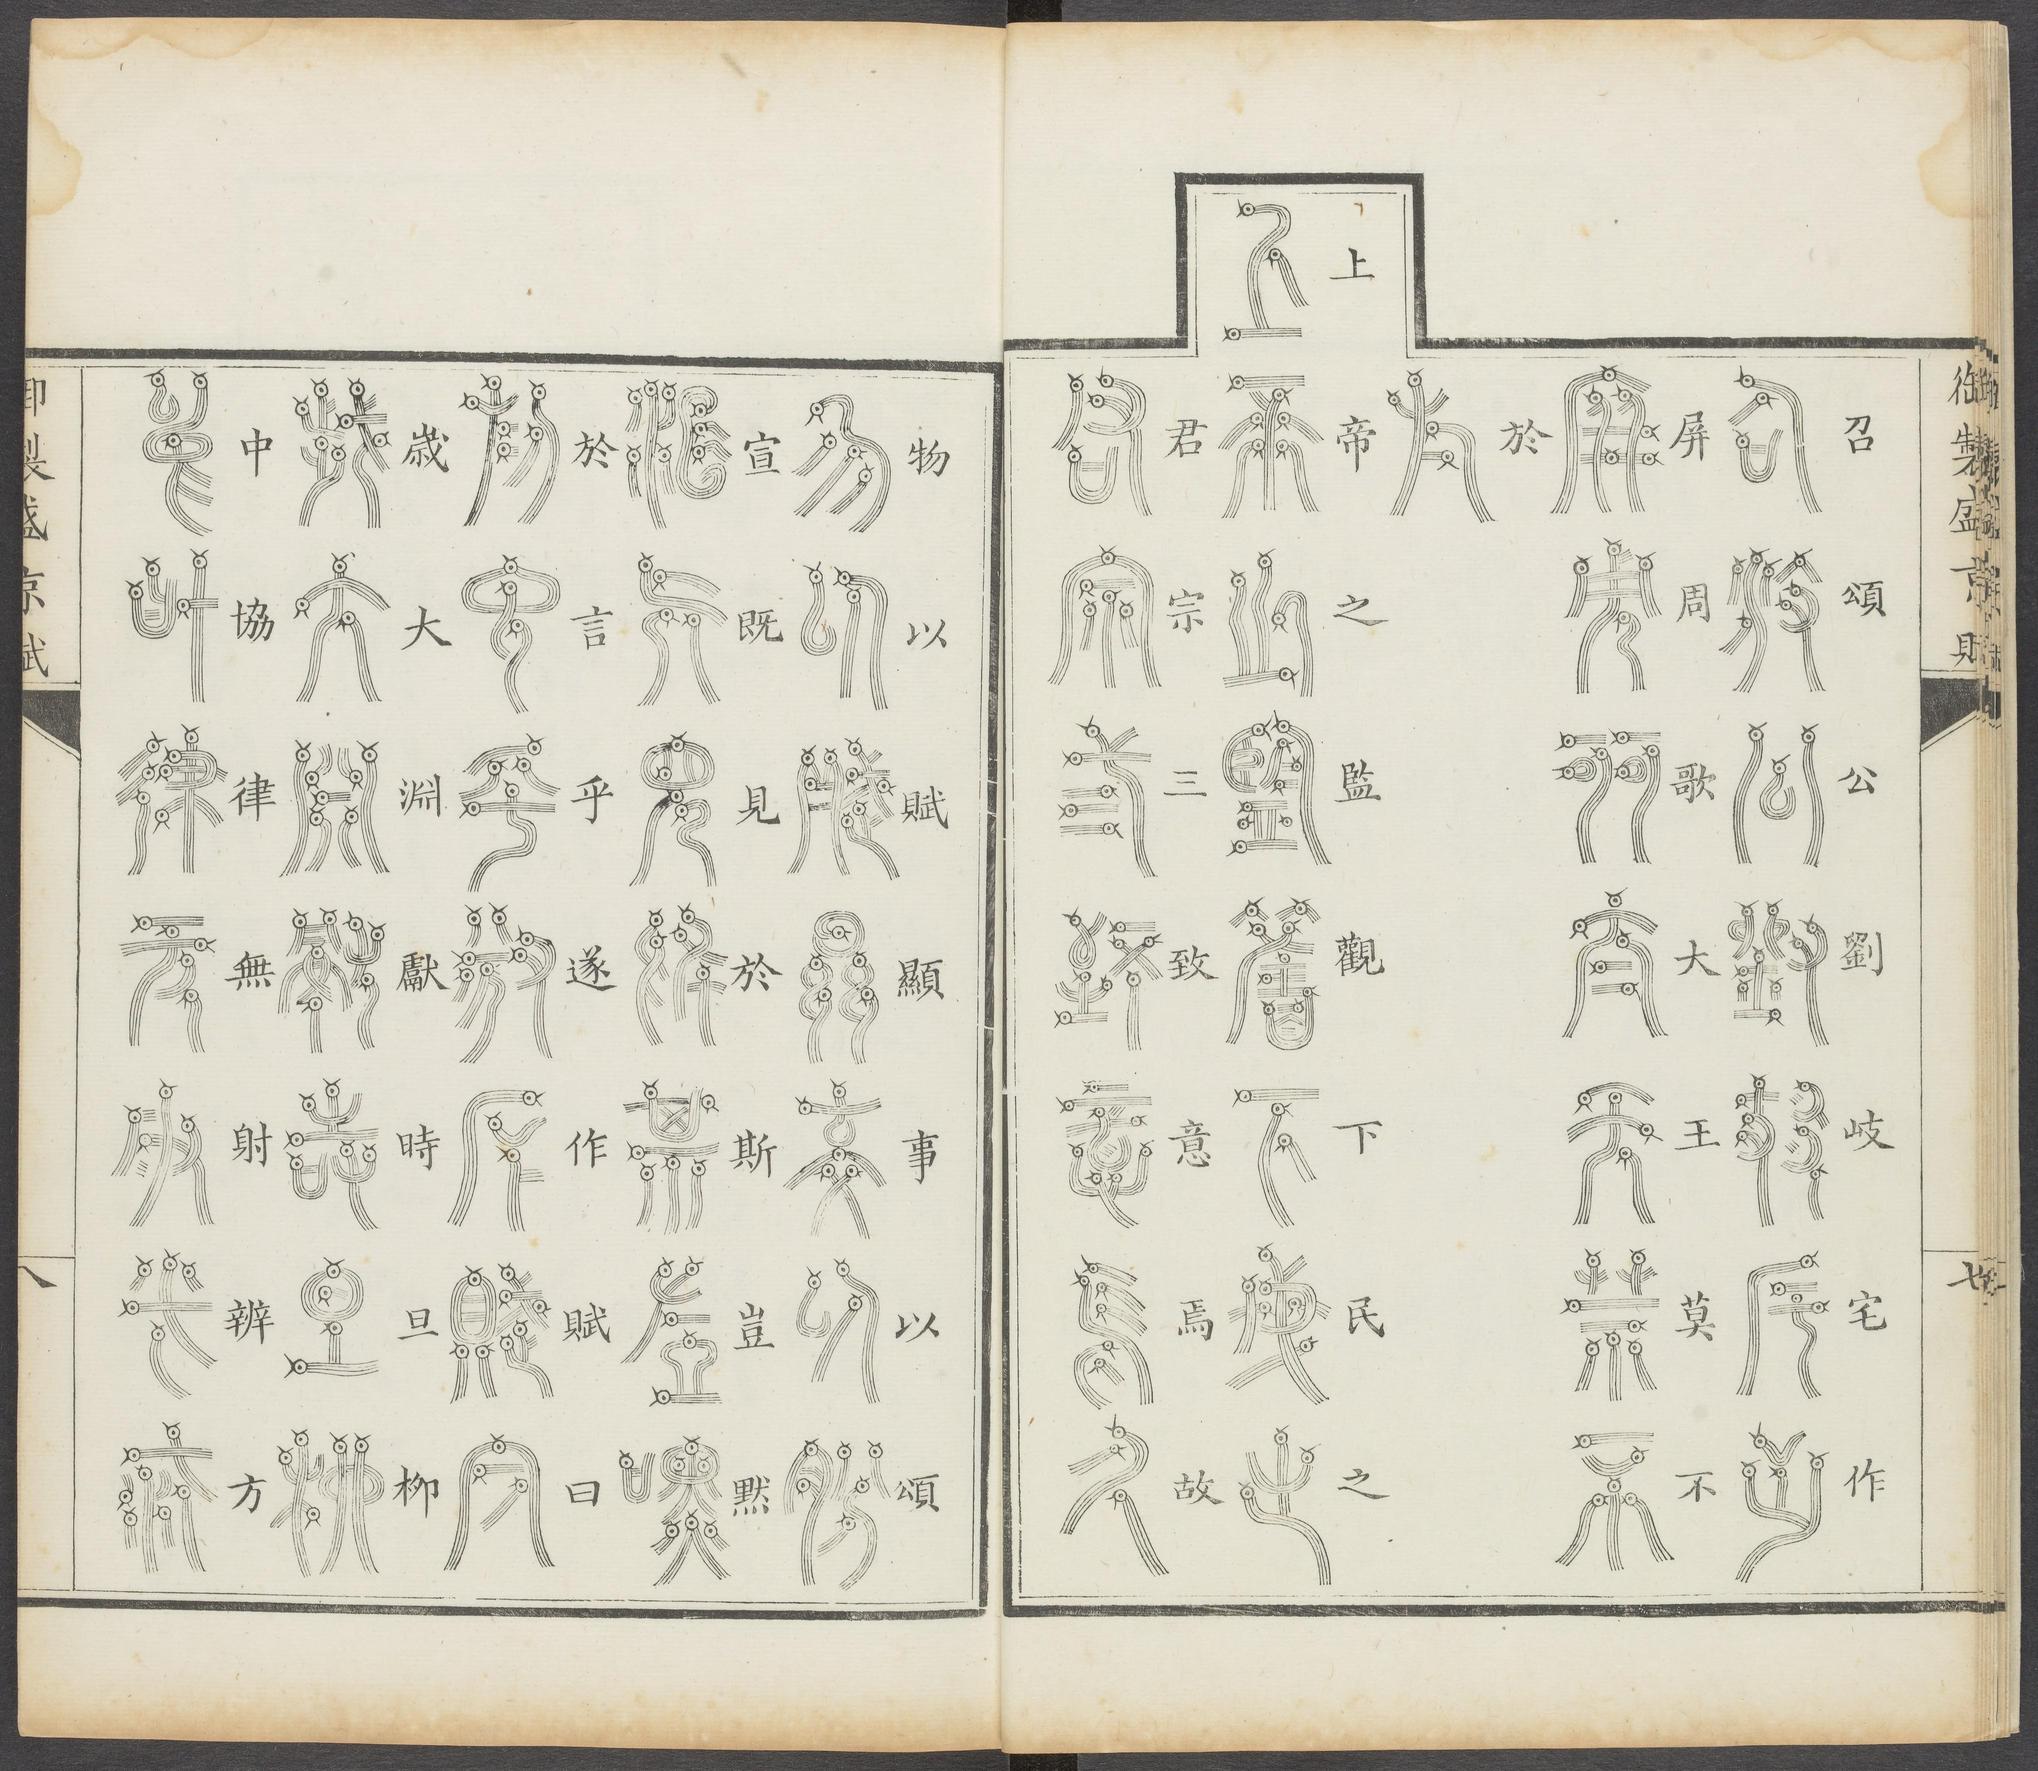 御製盛京賦
七
召頌公劉岐宅作
屏周歌大王莫不
於
上帝之監觀下民之
君宗三致意焉故
物以賦顯事以頌
宣既見於斯豈默
於言乎遂作賦曰
歳大淵獻時旦柳
中協律無射辨方
御製盛京賦
八